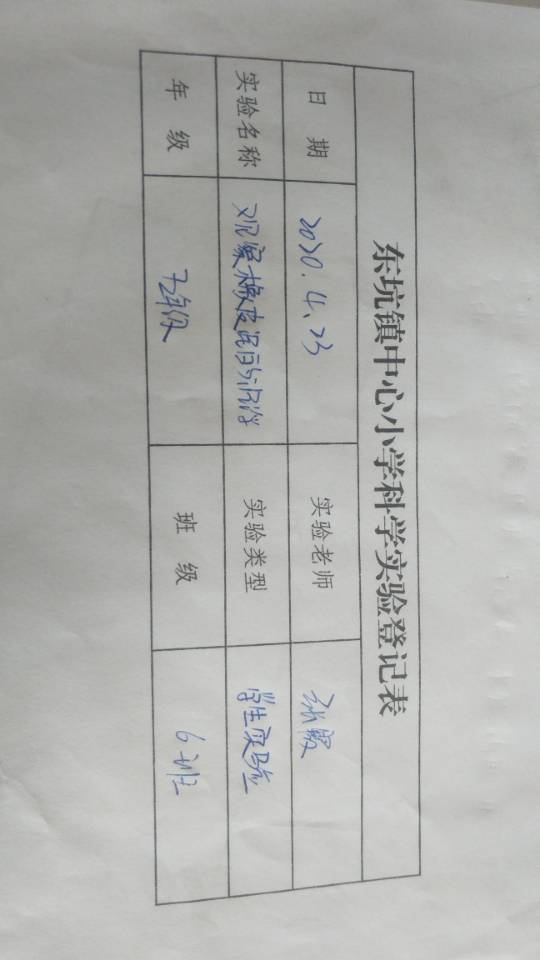 东坑镇中心小学科学实验登记表
日 期 2020.4.23 实验老师 张
实验名称 观察橡皮泥的沉浮 实验类型 学生实验
年 级 五年级 班 级 6班